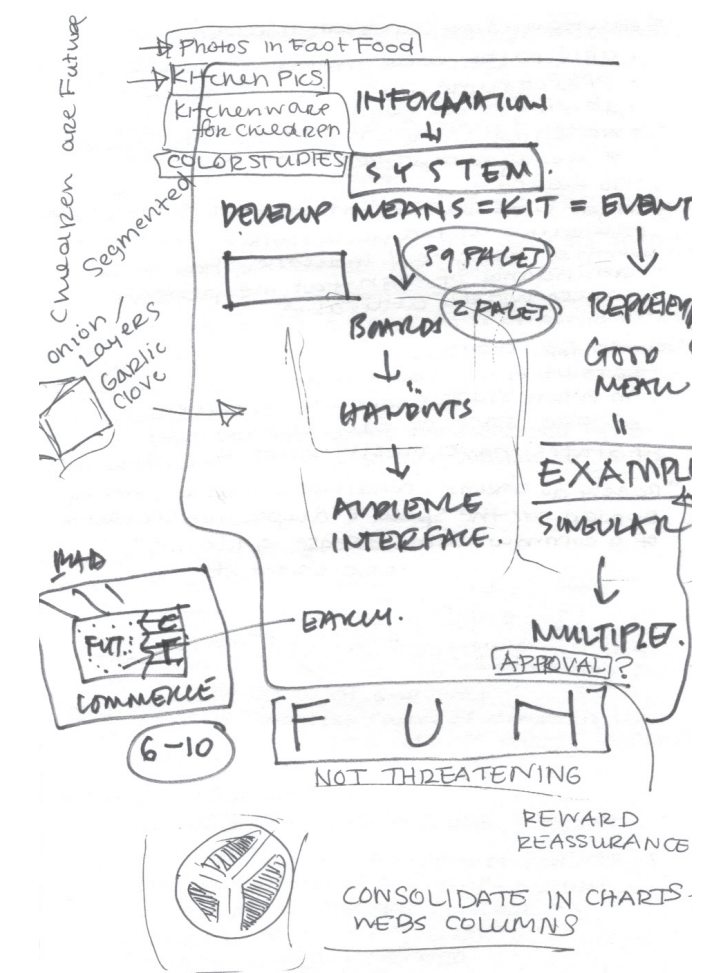 Photos in East Food
Kitchen Pics
Kitchenware
for Children
COLOR STUDIES
Children are Future
Segmented
onion/
Layers
Garlic
Clove
INFORMATION
SYSTEM.
DEVELOP MEANS = KIT = EVENT
39 PAGES
2 PAGES
BOARDS
HANDOUTS
AUDIENCE
INTERFACE.
GOOD
MEAL
EXAMPLE
SINGULAR
MULTIPLE.
APPOVAL?
EARLY.
FUT.:
C
I
COMMERCE
6-10
FUN
NOT THREATENING
REWARD
REASSURANCE
CONSOLIDATE IN CHARTS.
WEBS COLUMNS